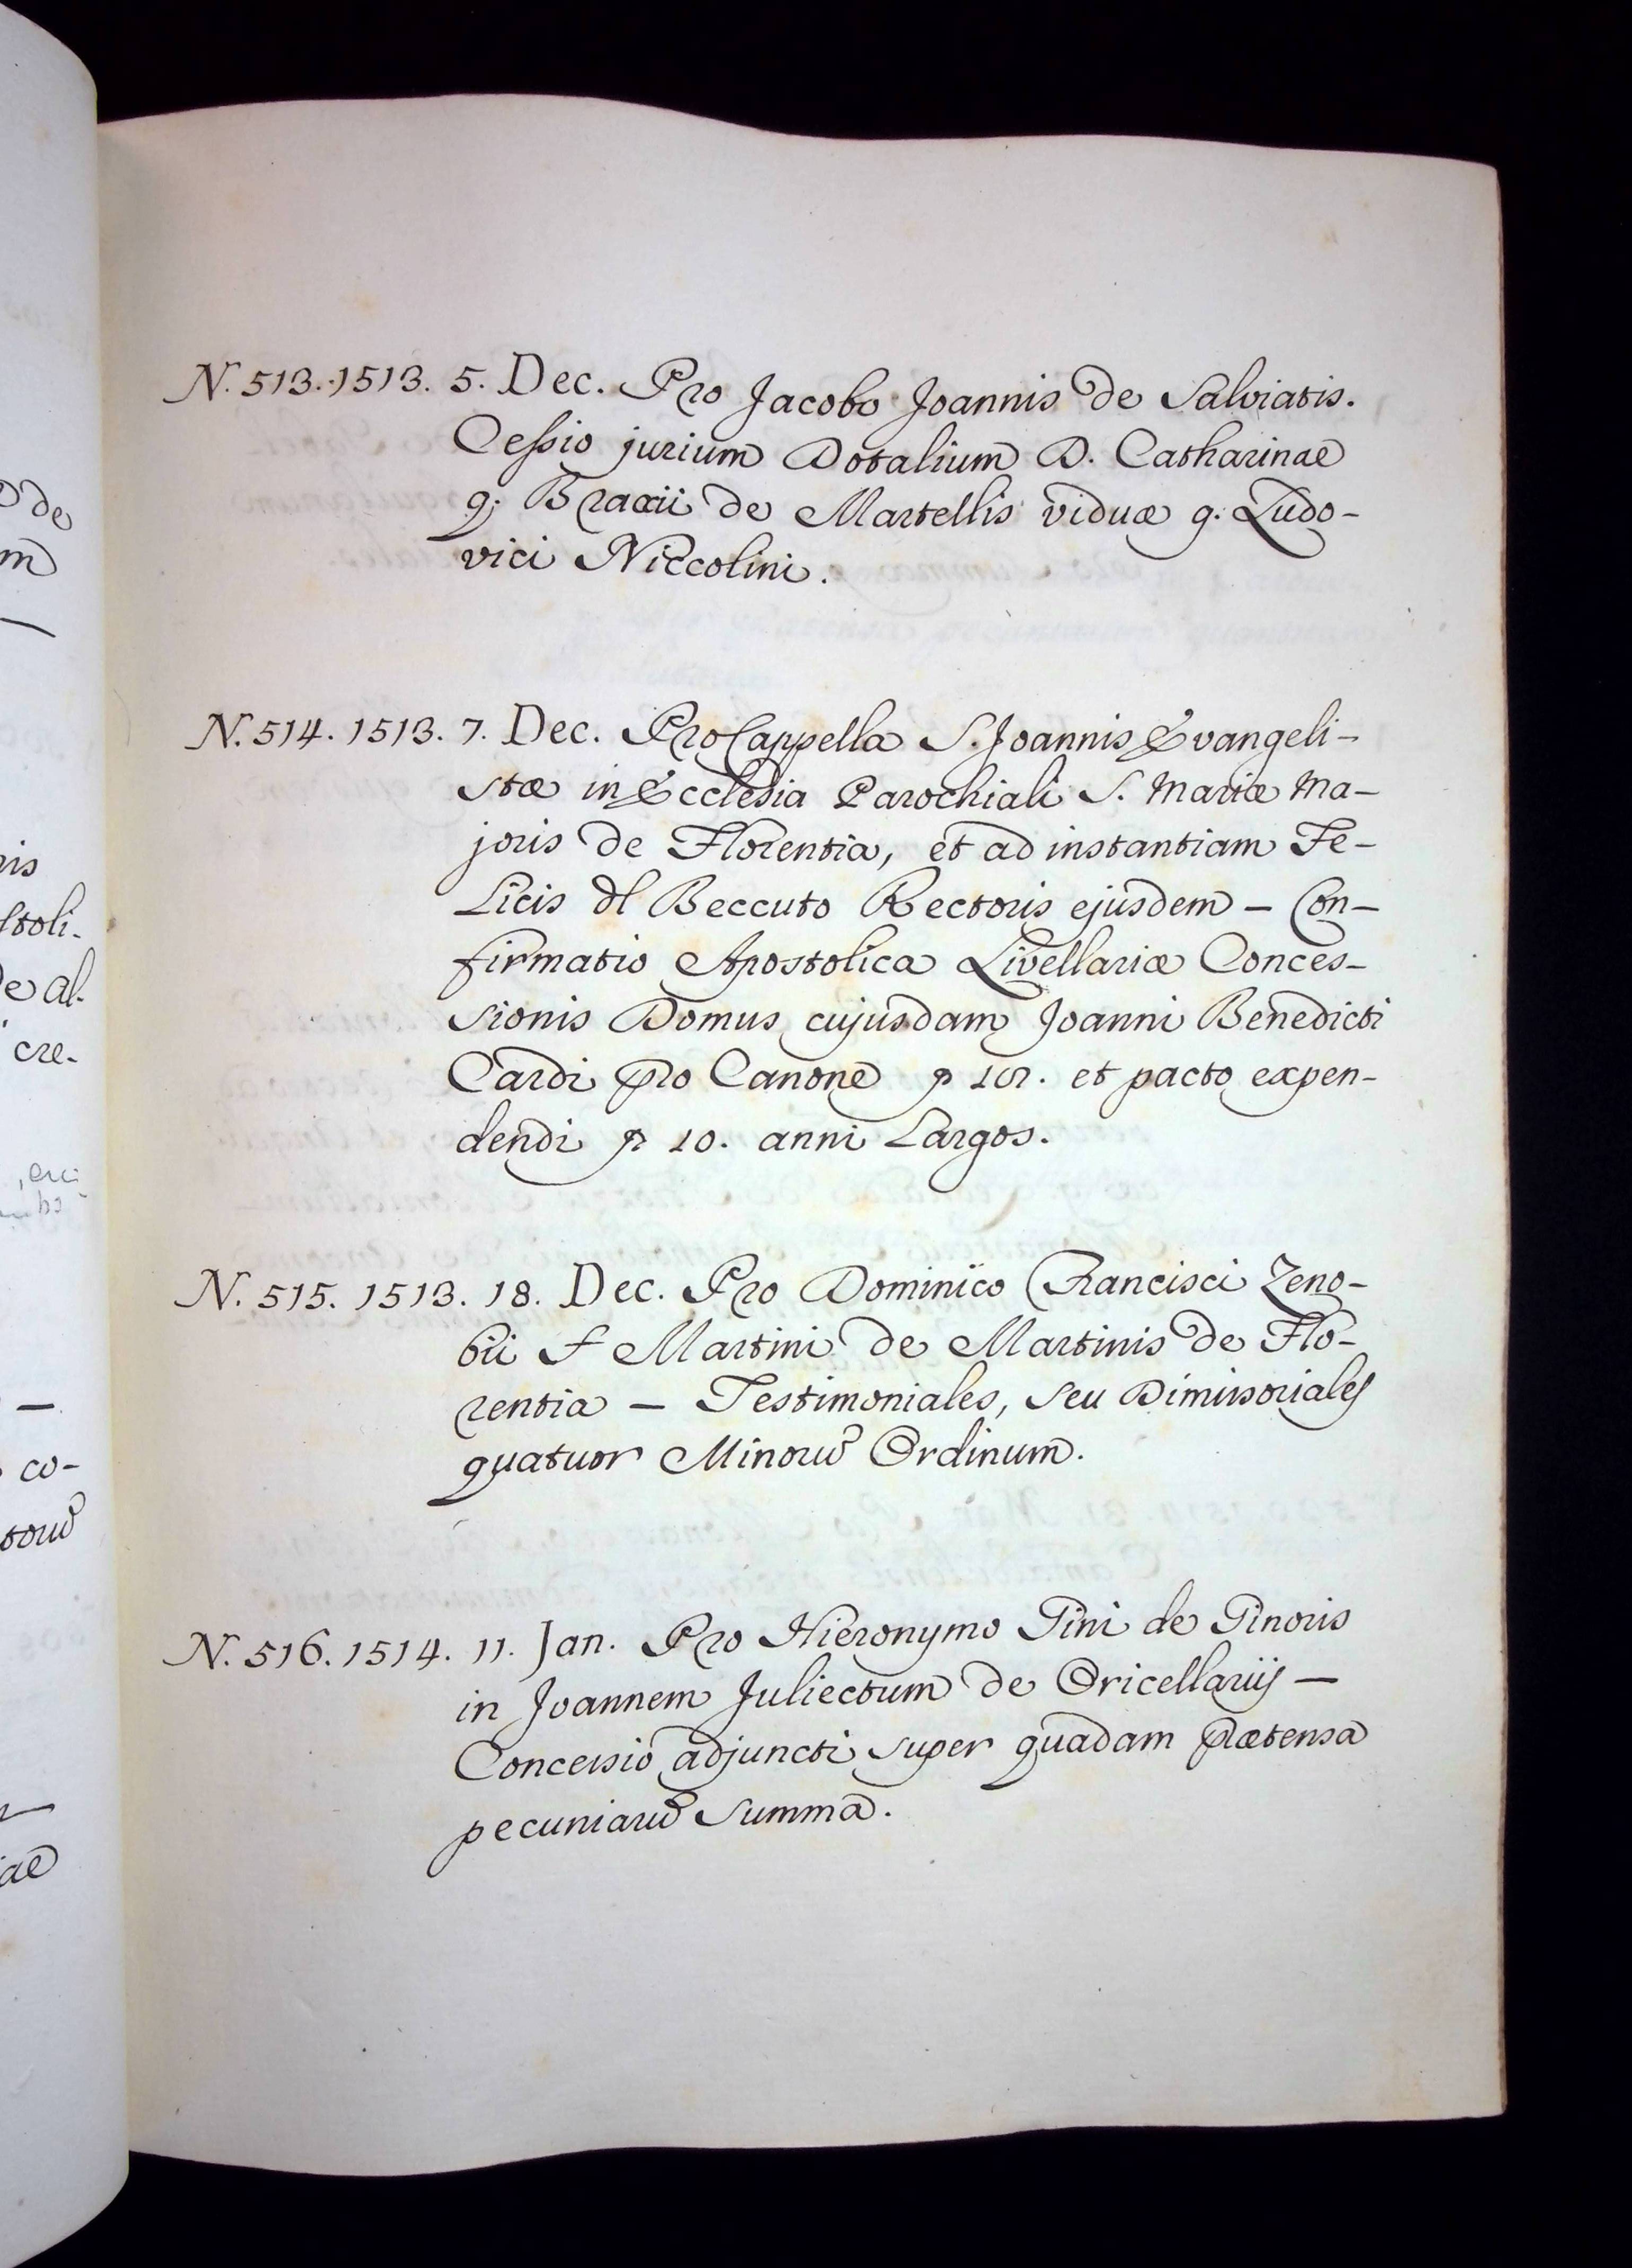 N. 513. 1513. 5. Dec. Pro Jacobo Joannis de Salviatis.
Cessio jurium Dotalium D. Catharinae
q. Braccii de Martellis viduæ q. Ludo-
vici Niccolini.
N. 514. 1513. 7. Dec. Pro Cappella S. Joannis Evangeli-
stæ in Ecclesia Parochiali S. Mariæ Ma-
joris de Florentia, et ad instantiam Fe-
licis del Beccuto Rectoris ejusdem – Con-
firmatio Apostolica Livellariæ Conces-
sionis Domus cujusdam Joanni Benedicti
Cardi pro Canone et pacto expen-
dendi 10. anni Largos.
N. 515. 1513. 18. Dec. Pro Dominico Francisci Zeno-
bii Martini de Martinis de Flo-
rentia – Testimoniales, seu Dimissoriales
quatuor Ordinum.
N. 516. 1514. 11. Jan. Pro Hieronymo Pini de Pinoris
in Joannem Juliectum de Oricellariis –
Concessio adjuncti super quadam prætensa
Summa.
de
m
is
stoli-
e al-
cre-
–
co-
ae